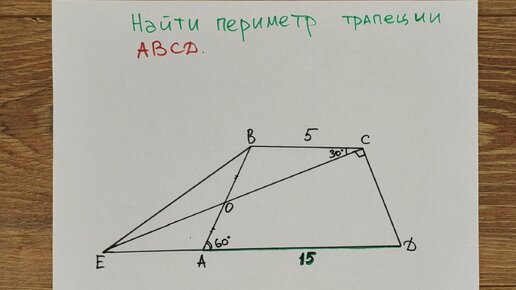 Найти периметр трапеции
ABCD.
B 5 C
30°
O
60°
E A 15 D